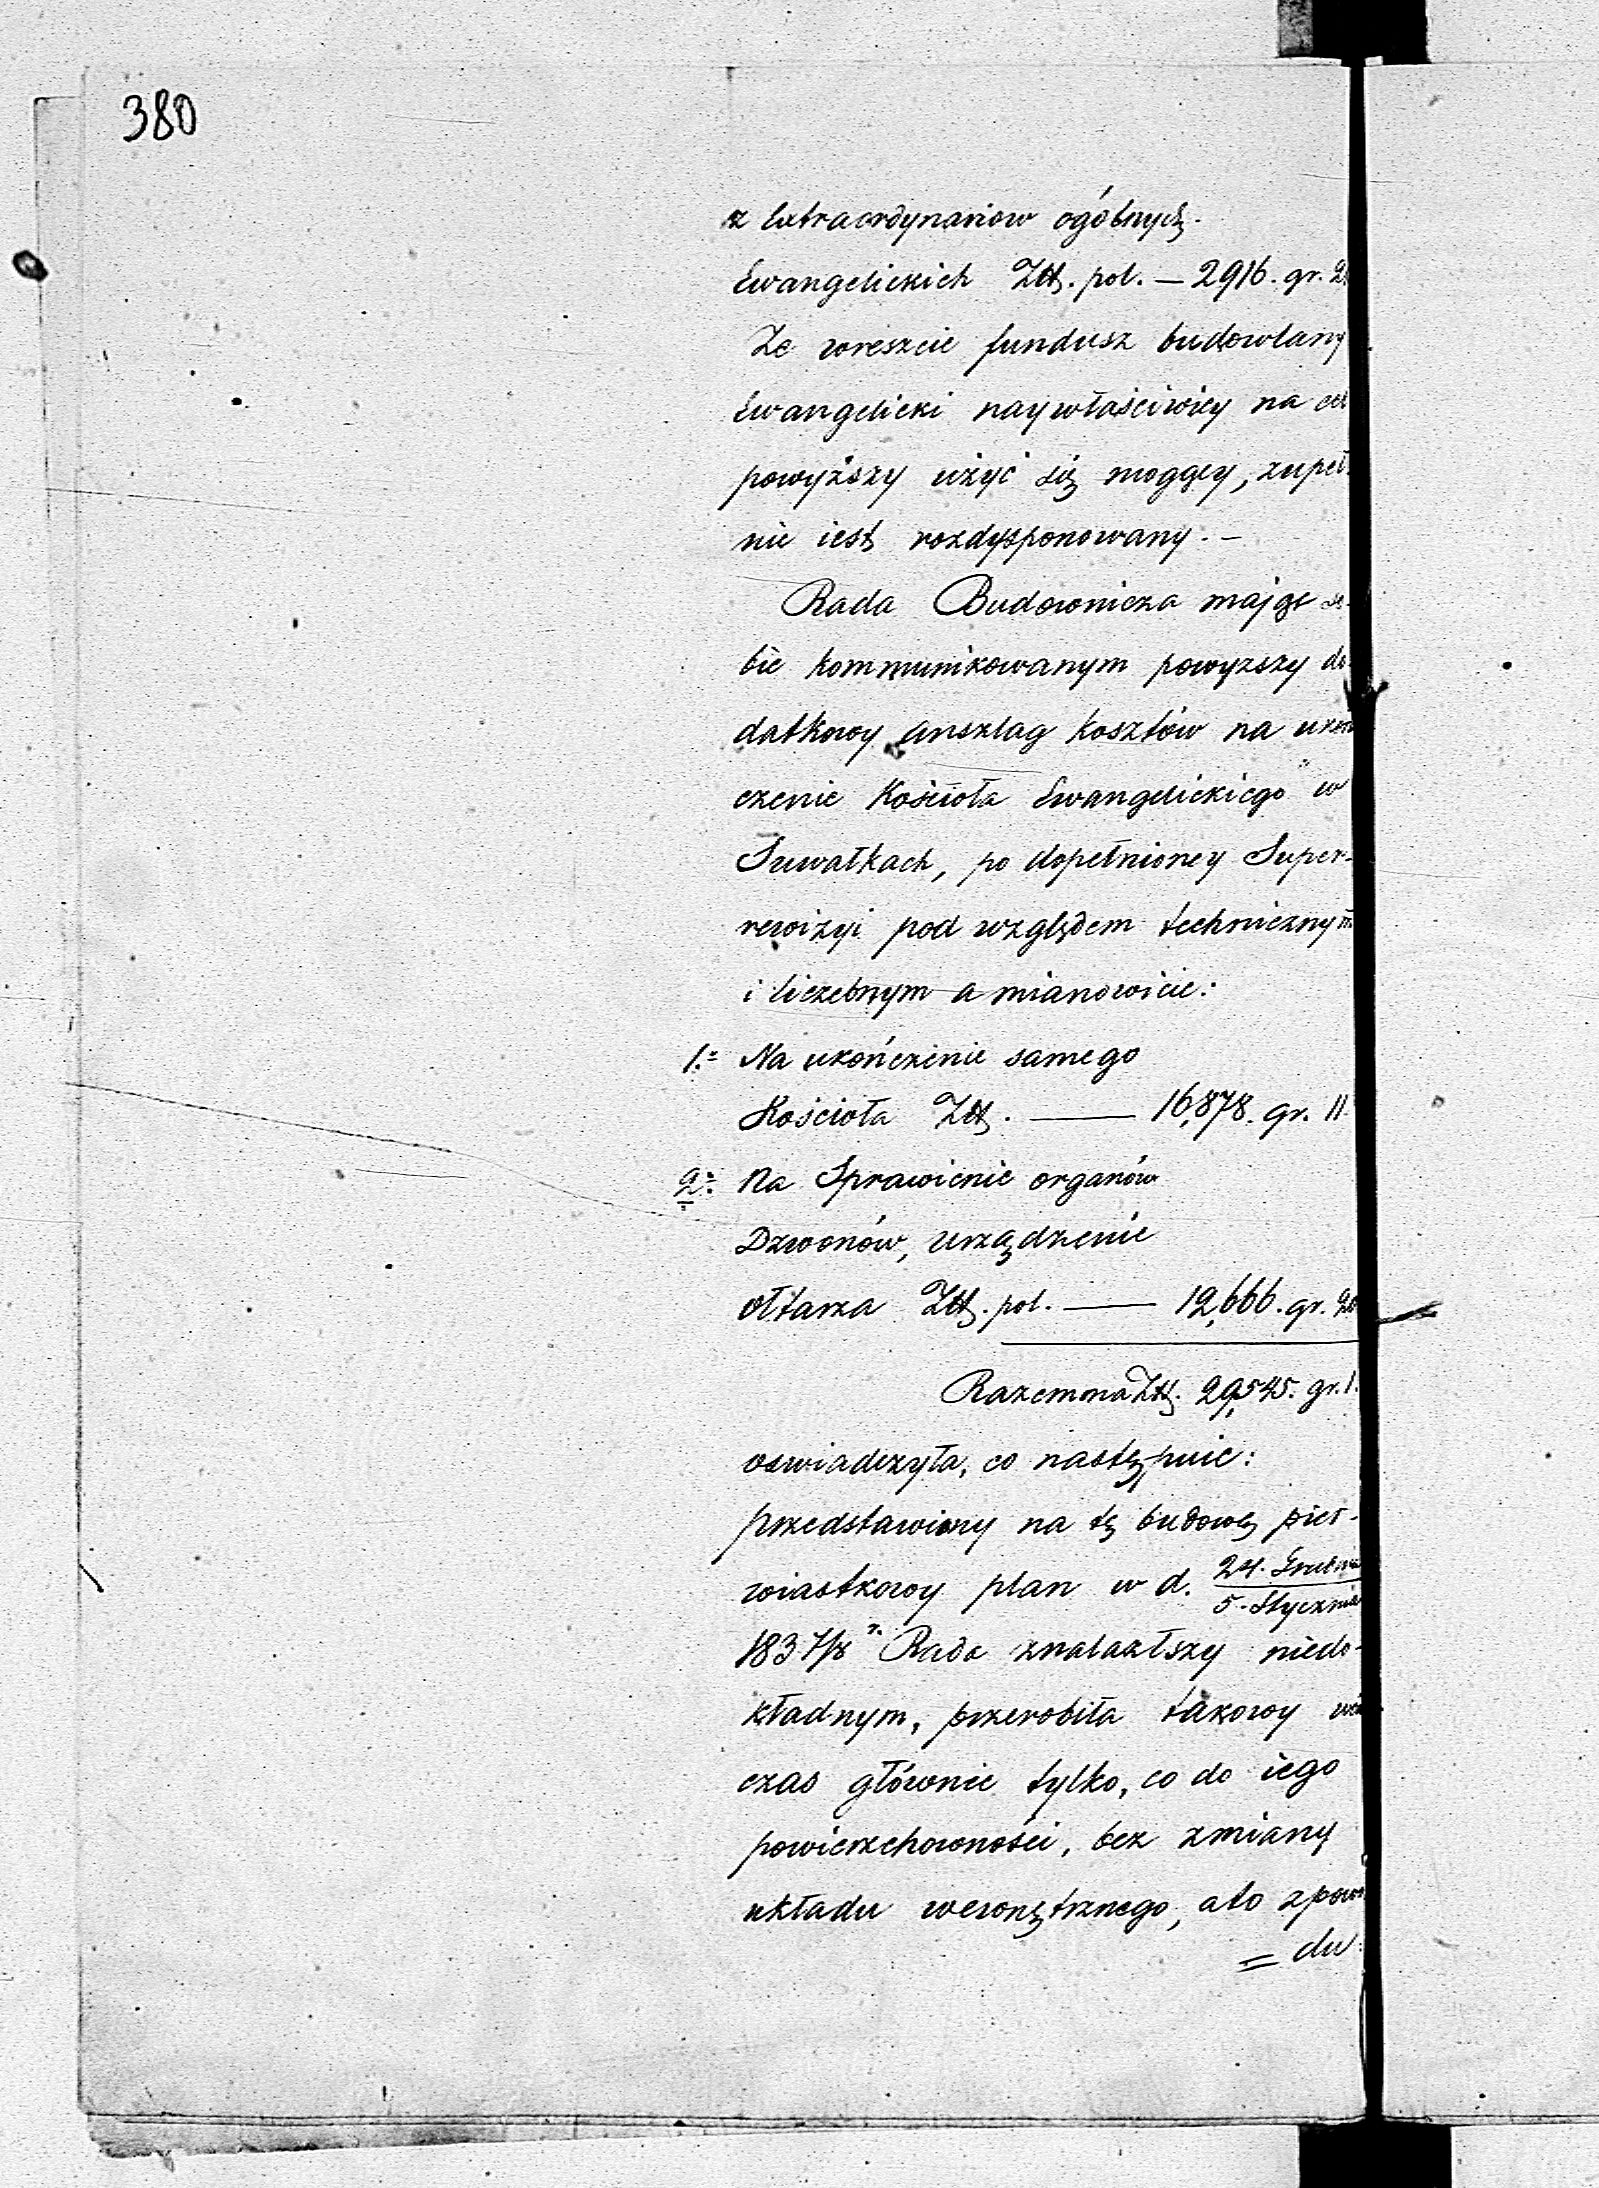 380
z Extraordynariow ogólnych
Ewangelickich Złt. pol. — 2916. gr. 2
Że wreszcie fundusz budowlany
Ewangelicki naywłaściwiey na cel
powyższy użyć się mogący, zupeł-
nie iest rozdysponowany. —
Rada Budownicza mając so-
bie kommunikowanym powyższy do-
datkowy anszlag kosztów na ukoń
czenie Kościoła Ewangelickiego w
Suwałkach, po dopełnioney Super-
rewizyi pod względem technicznym
i liczebnym a mianowicie:
1.= Na ukończenie samego
Kościoła Złt. — 16,878. gr. 11.
2.= Na Sprawienie organów
Dzwonów, urządzenie
ołtarza Złt. pol. — 12,666. gr. 20
Razem na Złt. 29,545. gr. 1.
oswiadczyła, co następuie:
przedstawiony na tę budowę pier-
wiastkowy plan w d. 24. Grudnia
5. Stycznia
1837/8 r. Rada znalazłszy niedo-
kładnym, przerobiła takowy wów
czas głównie tylko, co do iego
powierzchowności, bez zmiany
układu wewnętrznego, a to z powo
= du